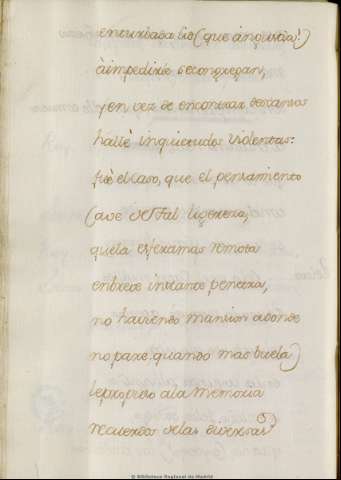 enturbada vio (que angustia!)
à impedirse se congregan,
y en vez de encontrar descansos
hallè inquietudes violentas:
fuè el caso, que el pensamiento
(ave de tal ligereza,
que la esfera mas remota
en breve instante penetra,
no haviendo mansion adonde
no pare quando mas buela)
le propuso a la memoria
recuerdos de las diversas
© Biblioteca Regional de Madrid